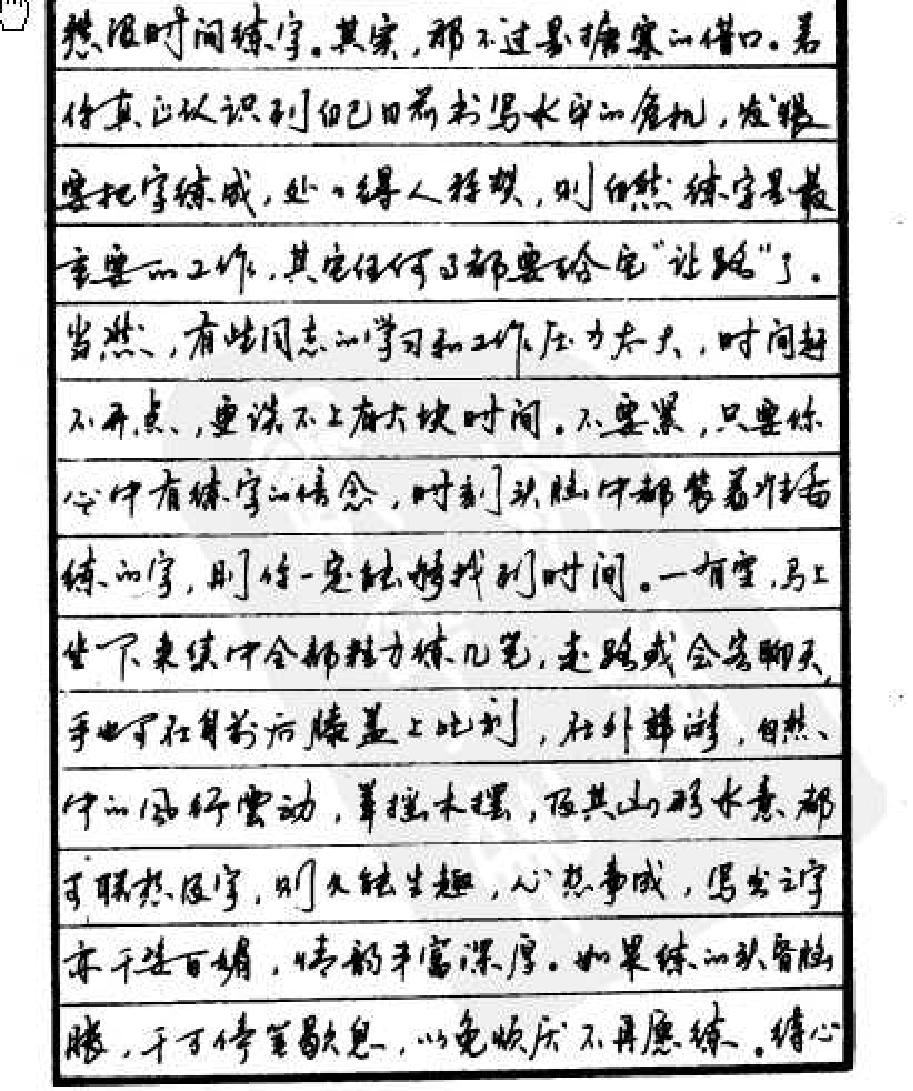 愁没时间练字。其实,那不过是搪塞的借口。若
你真正认识到自己目前书写水平的危机,发狠
要把字练成,处处得人称赞,则自然练字是最
重要的工作,其它任何事都要给它“让路”了。
当然,有些同志的学习和工作压力太大,时间赶
不开点,更谈不上有大块时间。不要累,只要你
心中有练字的信念,时刻头脑中都装着准备
练的字,则你一定能够找到时间。一有空,马上
坐下来集中全部精力练几笔,走路或会客聊天,
手也可在身前后膝盖上比划,在外郊游,自然
中的风行雲动,草摇木摆,及其山形水意都
可联想及字,则久能生趣,心想事成,写出之字
亦千姿百媚,情韵丰富深厚。如果练的头昏脑
胀,千万停笔歇息,以免烦厌不再愿练。待心